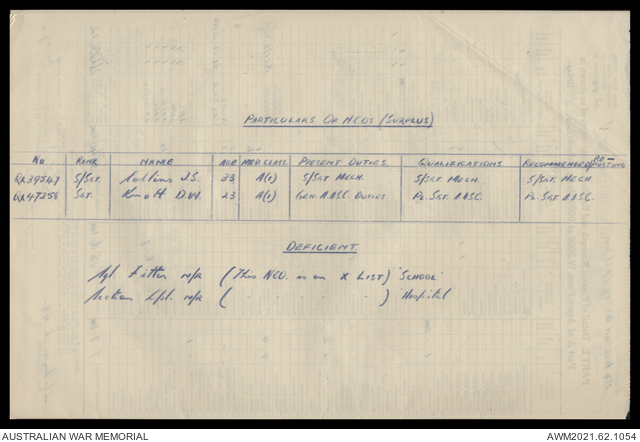 PARTICULARS OF NCOS (SURPLUS)
No RANK NAME AGE MED CLASS. PRESENT DUTIES. QUALIFICATIONS RECOMMENDED RE-POSTING
QX39547 S/SGT. Collins J.S. 33 A(1) S/SGT MECH. S/SGT. MECH. S/SGT. MECH.
QX47256 SGT. Knott D.W. 23 A(1) GEN. AASC. DUTIES PL. SGT. AASC. PL. SGT. AASC.
DEFICIENT
Sgt. Fitter m/r (THIS NCO. is on X LIST) 'SCHOOL'
Section Cpl. m/r ( " " " " ) 'Hospital'
AUSTRALIAN WAR MEMORIAL
AWM2021.62.1054